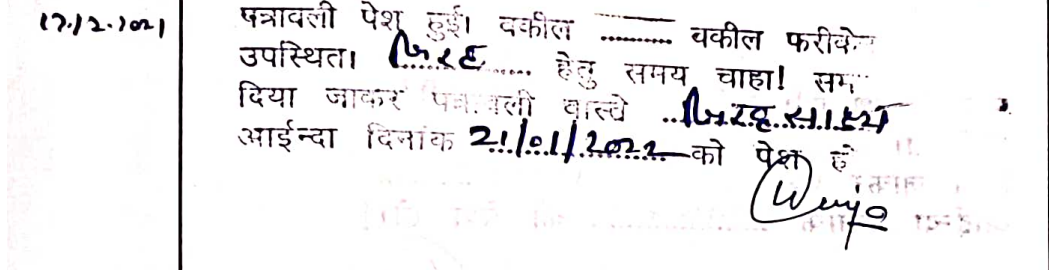 17.12.2021
पत्रावली पेश हुई। वकील ............ वकील फरीकेन
उपस्थित। जिरह हेतु समय चाहा! समय
दिया जाकर पत्रावली वास्ते जिरह साक्ष्य
आईन्दा दिनांक 21/01/2022 को पेश हो